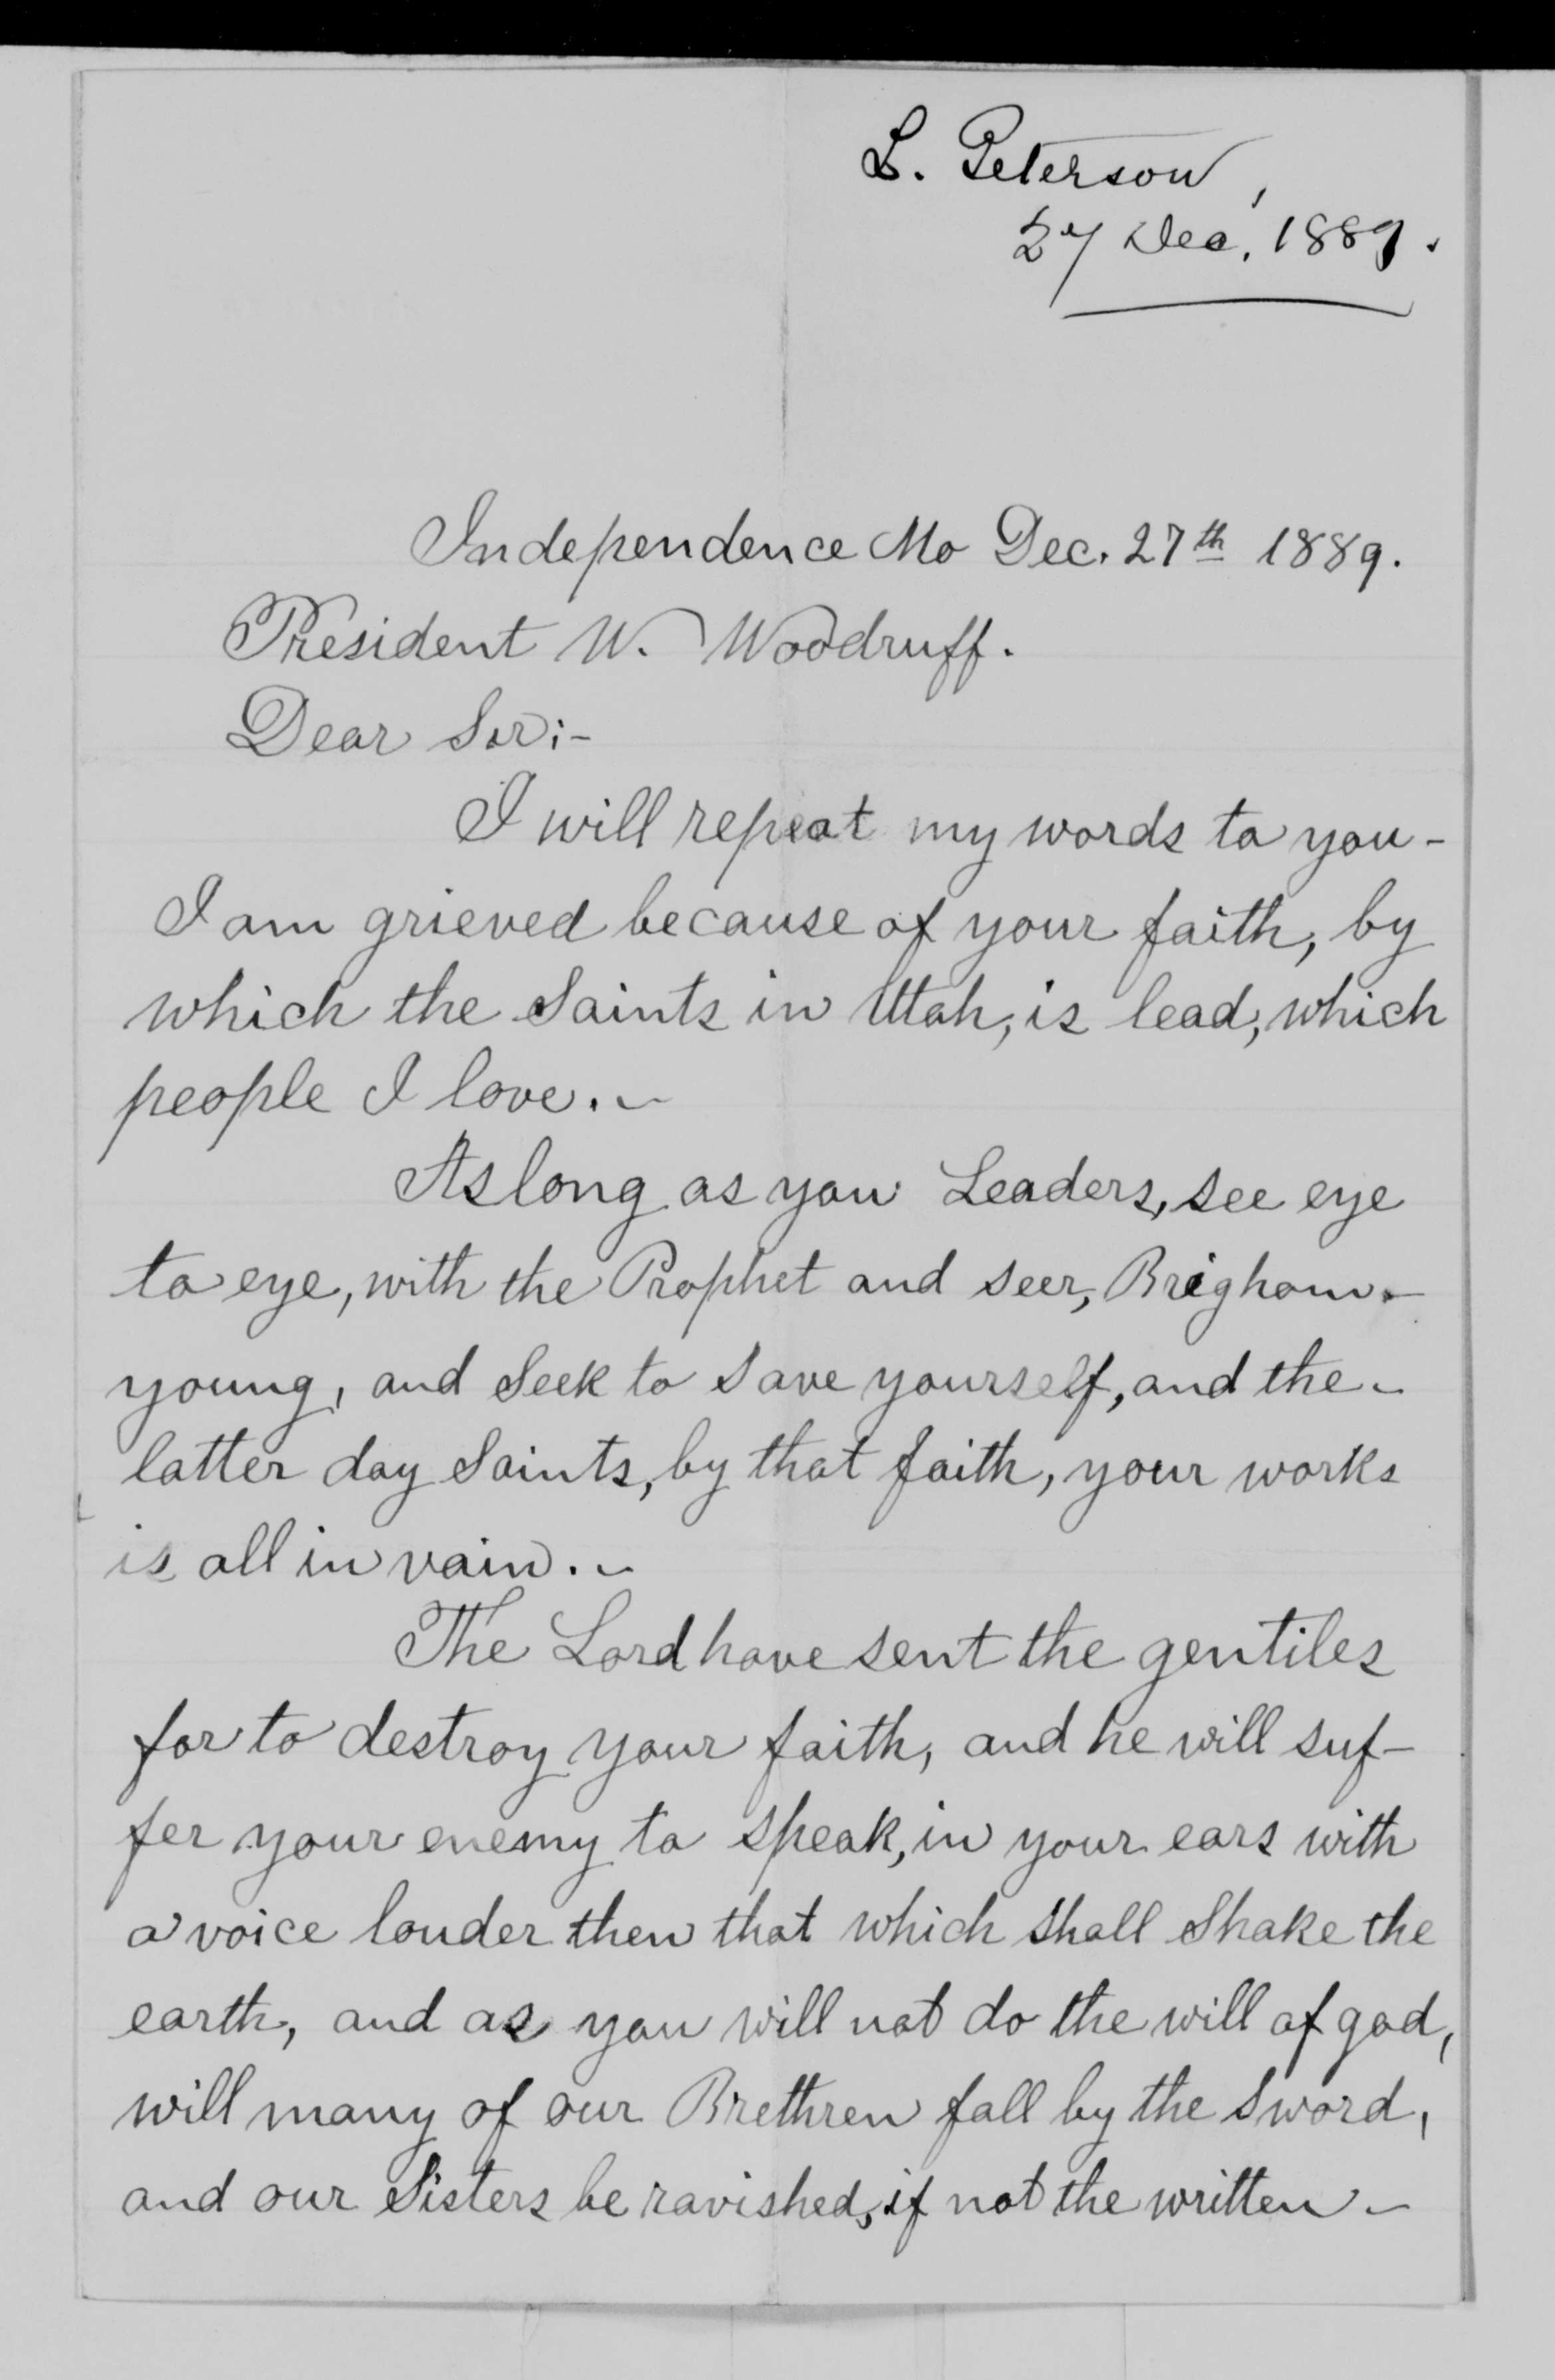 L. Peterson,
27 Dec, 1889.
Independence Mo Dec. 27th 1889.
President W. Woodruff.
Dear Sir;-
I will repeat my words to you-
I am grieved because of your faith, by
which the Saints in Utah, is lead, which
people I love.-
As long as you Leaders, see eye
to eye, with the Prophet and seer, Brigham-
young, and Seek to Save yourself, and the-
latter day Saints, by that faith, your works
is all in vain.-
The Lord have sent the gentiles
for to destroy your faith, and he will suf-
fer your enemy to speak, in your ears with
a voice louder then that which shall Shake the
earth, and as you will not do the will of god,
will many of our Brethren fall by the Sword,
and our Sisters be ravished, if not the written-